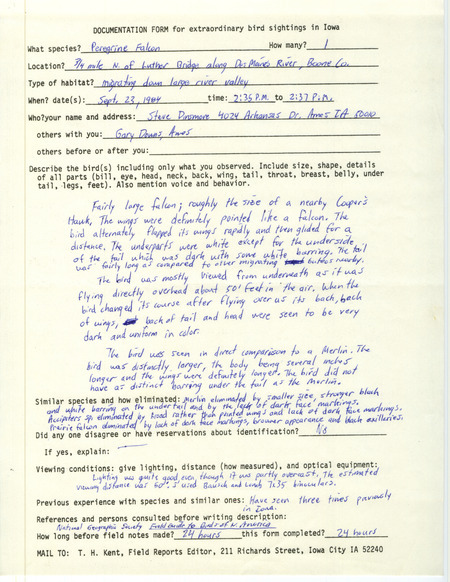 DOCUMENTATION FORM for extraordinary bird sightings in Iowa
What species? Peregrine Falcon How many? 1
Location? 3/4 mile N. of Luther Bridge along Des Moines River, Boone Co.
Type of habitat? migrating down large river valley
When? date(s): Sept. 23, 1984 time: 2:35 P.M. to 2:37 P.M.
Who?your name and address: Steve Dinsmore 4024 Arkansas Dr. Ames IA 50010
others with you: Gary Downs, Ames
others before or after you:
Describe the bird(s) including only what you observed. Include size, shape, details
of all parts (bill, eye, head, neck, back, wing, tail, throat, breast, belly, under
tail, legs, feet). Also mention voice and behavior.
Fairly large falcon; roughly the size of a nearby Cooper's
Hawk. The wings were definitely pointed like a falcon. The
bird alternately flapped its wings rapidly and then glided for a
distance. The underparts were white except for the underside
of the tail which was dark with some white barring. The tail
was fairly long as compared to other migrating buteos nearby.
The bird was mostly viewed from underneath as it was
flying directly overhead about 50 feet in the air. When the
bird changed its course after flying over us its back, back
of wings, back of tail and head were seen to be very
dark and uniform in color.
The bird was seen in direct comparison to a Merlin. The
bird was distinctly larger, the body being several inches
longer and the wings were definitely longer. The bird did not
have as distinct barring under the tail as the Merlin.
Similar species and how eliminated: Merlin eliminated by smaller size, stronger black
and white barring on the under tail and by the lack of dark face markings.
Accipiters sp. eliminated by round rather than pointed wings and lack of dark face markings.
Prairie Falcon eliminated by lack of dark face markings, browner appearance and black axillaries.
Did any one disagree or have reservations about identification? No
If yes, explain:
Viewing conditions: give lighting, distance (how measured), and optical equipment:
Lighting was quite good even though it was partly overcast. The estimated
viewing distance was 50'. I used Bausch and Lomb 7x35 binoculars.
Previous experience with species and similar ones: Have seen three times previously
in Iowa.
References and persons consulted before writing description:
National Geographic Society Field Guide to Birds of N. America
How long before field notes made? 24 hours this form completed? 24 hours
MAIL TO: T. H. Kent, Field Reports Editor, 211 Richards Street, Iowa City IA 52240